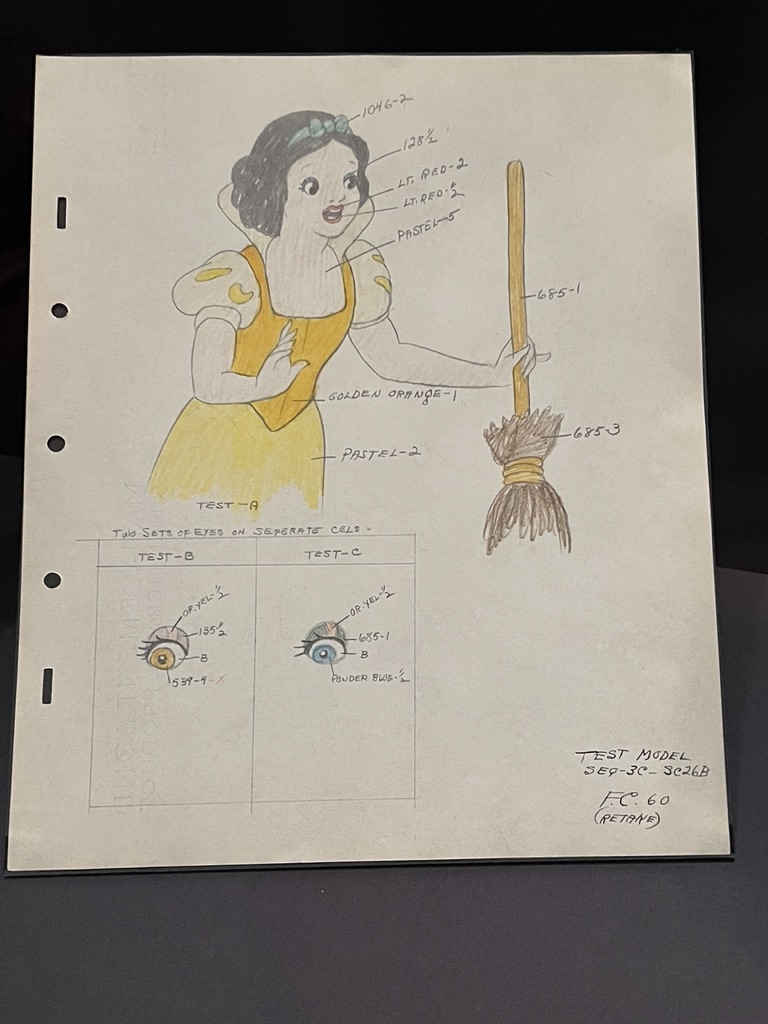 1046-2
128½
LT. RED-2
LT. RED-½
PASTEL-5
685-1
GOLDEN ORANGE-1
685-3
PASTEL-2
TEST-A
TWO SETS OF EYES ON SEPERATE CELS-
TEST-B
TEST-C
OR.YEL-½
135½
B
539-4-X
OR.YEL-½
685-1
B
POWDER BLUE-½
TEST MODEL
SEQ-3C-SC26B
F.C. 60
(RETAKE)